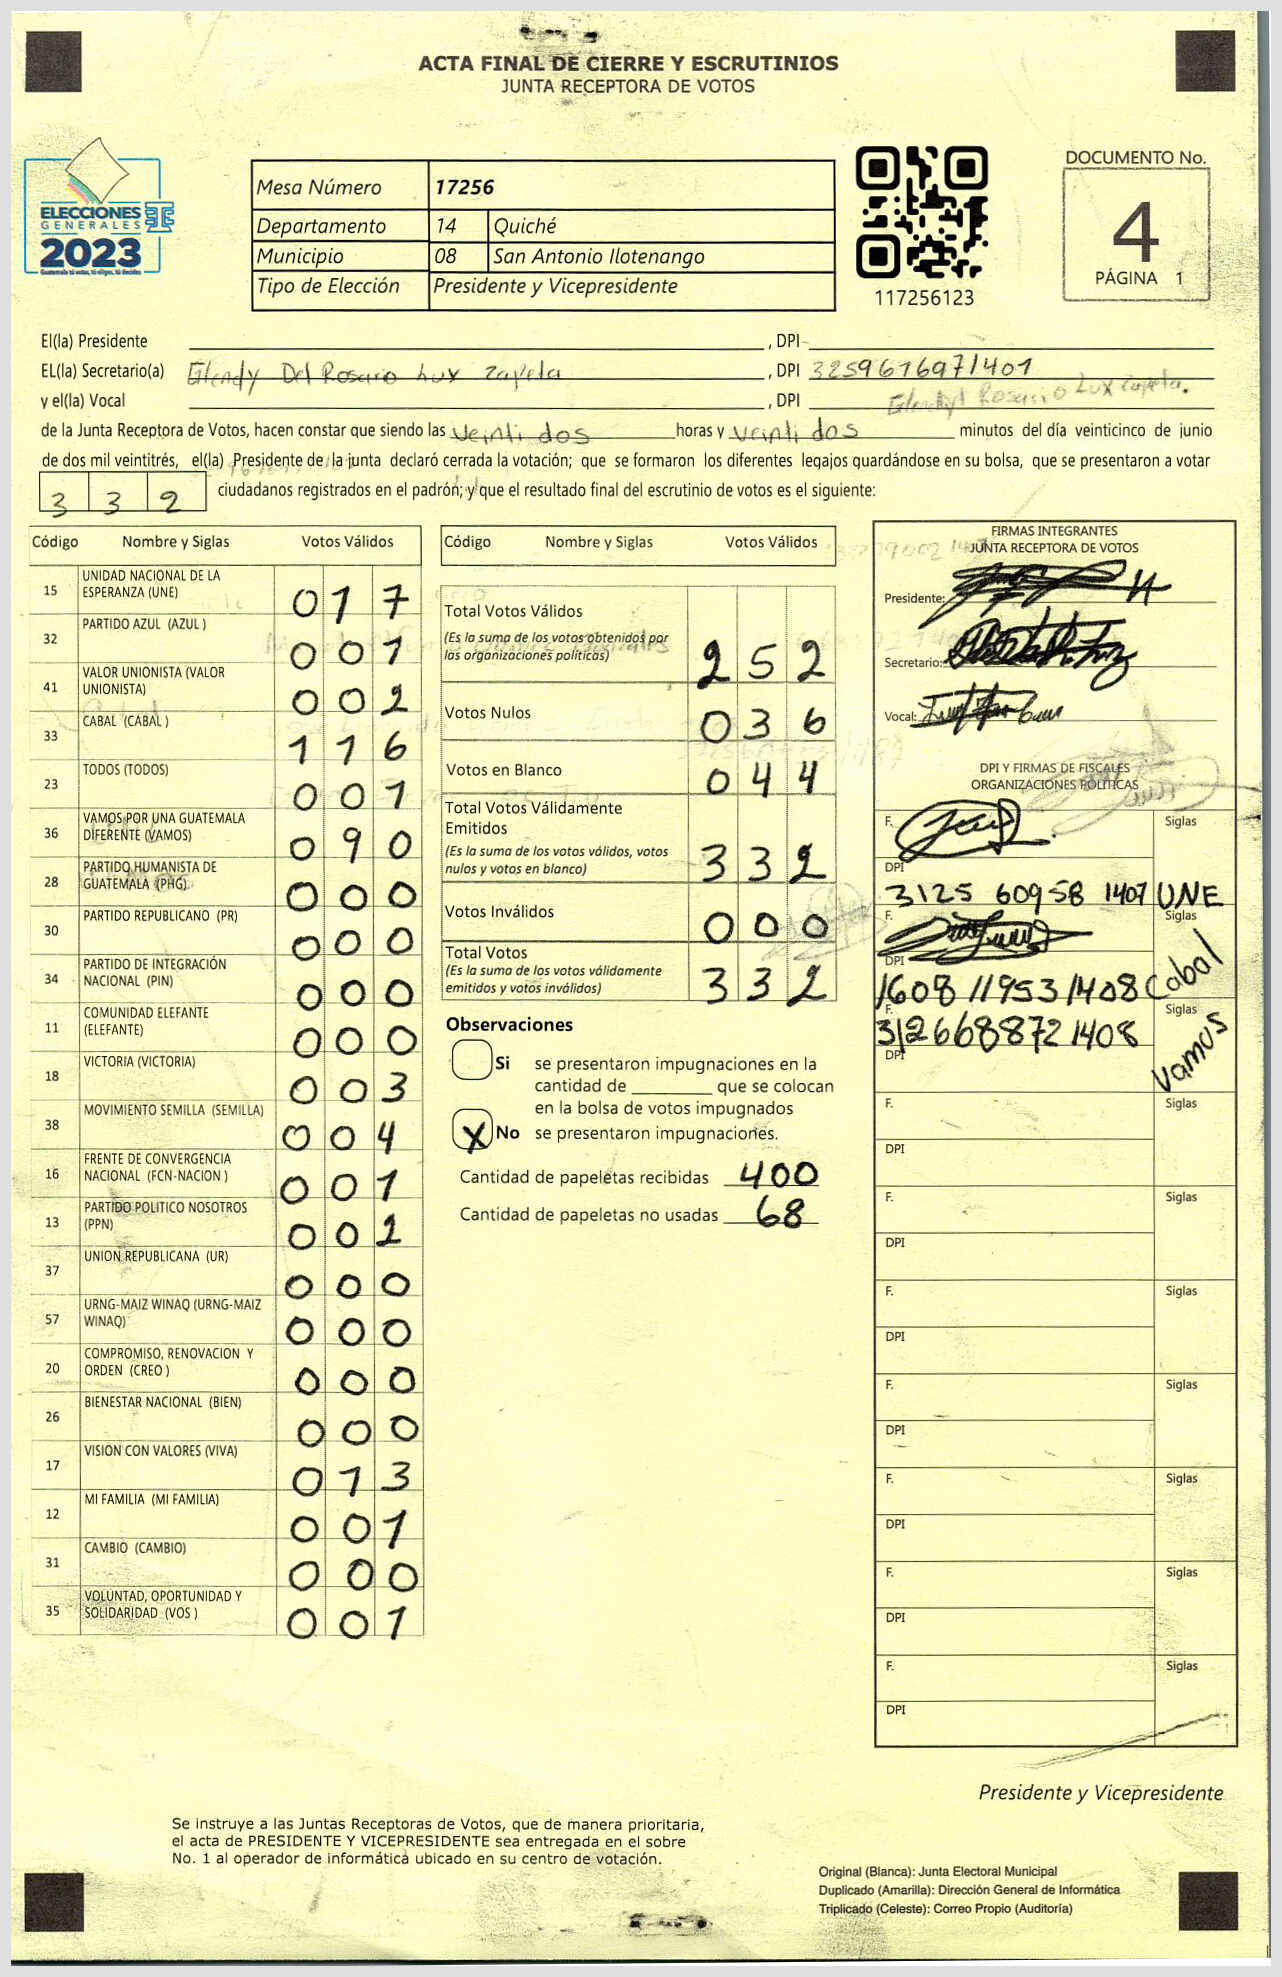 ACTA FINAL DE CIERRE Y ESCRUTINIOS
JUNTA RECEPTORA DE VOTOS
ELECCIONES
GENERALES
2023
Mesa Número 17256
Departamento 14 Quiché
Municipio 08 San Antonio Ilotenango
Tipo de Elección Presidente y Vicepresidente
117256123
DOCUMENTO No.
4
PÁGINA 1
El(la) Presidente , DPI
EL(la) Secretario(a) Glendy Del Rosario Lux Zapeta , DPI 3259616971401
y el(la) Vocal , DPI
de la Junta Receptora de Votos, hacen constar que siendo las veinti dos horas y veinti dos minutos del día veinticinco de junio
de dos mil veintitrés, el(la) Presidente de la junta declaró cerrada la votación; que se formaron los diferentes legajos guardándose en su bolsa, que se presentaron a votar
3 3 2 ciudadanos registrados en el padrón; y que el resultado final del escrutinio de votos es el siguiente:
Código Nombre y Siglas Votos Válidos
15 UNIDAD NACIONAL DE LA ESPERANZA (UNE) 0 1 7
32 PARTIDO AZUL (AZUL ) 0 0 1
41 VALOR UNIONISTA (VALOR UNIONISTA) 0 0 2
33 CABAL (CABAL ) 1 1 6
23 TODOS (TODOS) 0 0 1
36 VAMOS POR UNA GUATEMALA DIFERENTE (VAMOS) 0 9 0
28 PARTIDO HUMANISTA DE GUATEMALA (PHG) 0 0 0
30 PARTIDO REPUBLICANO (PR) 0 0 0
34 PARTIDO DE INTEGRACIÓN NACIONAL (PIN) 0 0 0
11 COMUNIDAD ELEFANTE (ELEFANTE) 0 0 0
18 VICTORIA (VICTORIA) 0 0 3
38 MOVIMIENTO SEMILLA (SEMILLA) 0 0 4
16 FRENTE DE CONVERGENCIA NACIONAL (FCN-NACION ) 0 0 1
13 PARTIDO POLITICO NOSOTROS (PPN) 0 0 2
37 UNION REPUBLICANA (UR) 0 0 0
57 URNG-MAIZ WINAQ (URNG-MAIZ WINAQ) 0 0 0
20 COMPROMISO, RENOVACION Y ORDEN (CREO ) 0 0 0
26 BIENESTAR NACIONAL (BIEN) 0 0 0
17 VISION CON VALORES (VIVA) 0 1 3
12 MI FAMILIA (MI FAMILIA) 0 0 1
31 CAMBIO (CAMBIO) 0 0 0
35 VOLUNTAD, OPORTUNIDAD Y SOLIDARIDAD (VOS ) 0 0 1
Código Nombre y Siglas Votos Válidos
Total Votos Válidos
(Es la suma de los votos obtenidos por
las organizaciones políticas) 2 5 2
Votos Nulos 0 3 6
Votos en Blanco 0 4 4
Total Votos Válidamente
Emitidos
(Es la suma de los votos válidos, votos
nulos y votos en blanco) 3 3 2
Votos Inválidos 0 0 0
Total Votos
(Es la suma de los votos válidamente
emitidos y votos inválidos) 3 3 2
Observaciones
Si se presentaron impugnaciones en la
cantidad de ________ que se colocan
en la bolsa de votos impugnados
X No se presentaron impugnaciones.
Cantidad de papeletas recibidas 400
Cantidad de papeletas no usadas 68
FIRMAS INTEGRANTES
JUNTA RECEPTORA DE VOTOS
Presidente:
Secretario:
Vocal:
DPI Y FIRMAS DE FISCALES
ORGANIZACIONES POLÍTICAS
F. Siglas
DPI
3125 60958 1407 UNE
F. Siglas
DPI
1608 11953 1408 Cabal
F. Siglas
312668872 1408 Vamos
DPI
F. Siglas
DPI
F. Siglas
DPI
F. Siglas
DPI
F. Siglas
DPI
F. Siglas
DPI
F. Siglas
DPI
F. Siglas
DPI
Presidente y Vicepresidente
Se instruye a las Juntas Receptoras de Votos, que de manera prioritaria,
el acta de PRESIDENTE Y VICEPRESIDENTE sea entregada en el sobre
No. 1 al operador de informática ubicado en su centro de votación.
Original (Blanca): Junta Electoral Municipal
Duplicado (Amarilla): Dirección General de Informática
Triplicado (Celeste): Correo Propio (Auditoría)